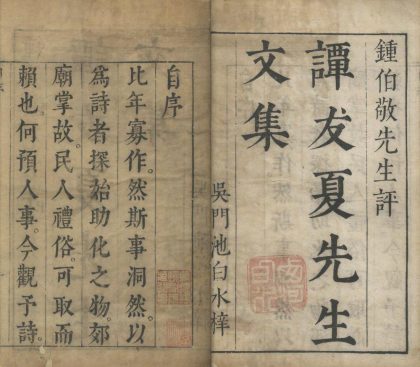 鍾伯敬先生評
譚友夏先生
文集
吳門池白水梓
自序
比年寡作。然斯事洞然。以
為詩者探始助化之物。郊
廟掌故。民人禮俗。可取而
賴也。何預人事。今觀予詩。